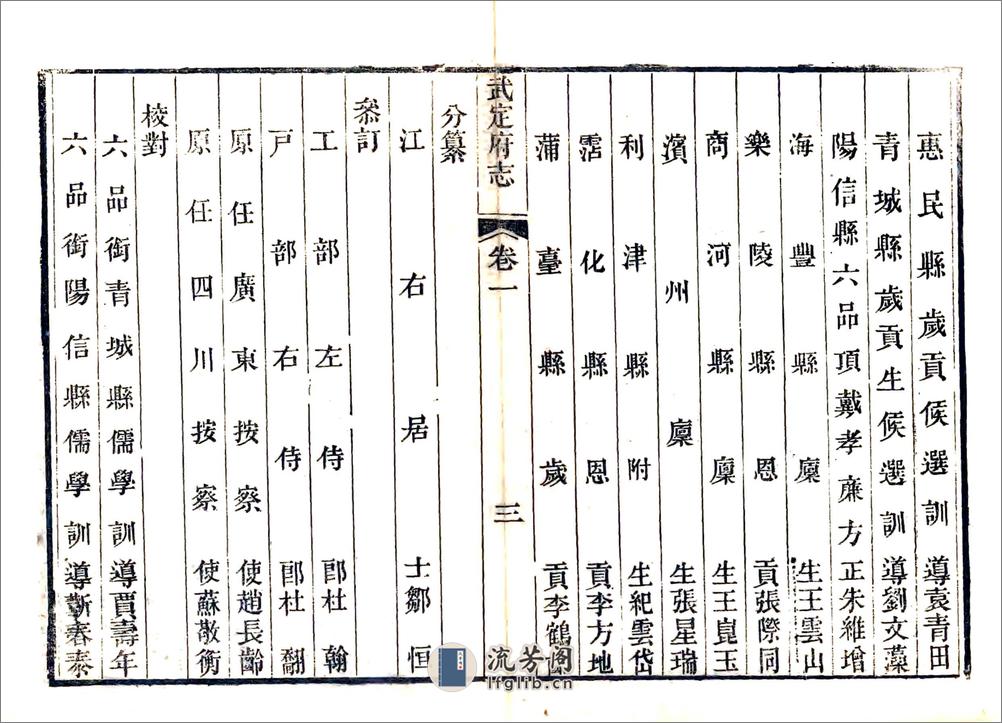 惠民縣歲貢候選訓導袁青田
青城縣歲貢生候選訓導劉文藻
陽信縣六品頂戴孝廉方正朱維增
海豐縣廩生王雲山
樂陵縣恩貢張際同
商河縣廩生王崑玉
濱州廩生張星瑞
利津縣附生紀雲岱
霑化縣恩貢李方地
蒲臺縣歲貢李鶴
武定府志
卷一
三
分纂
江右居士鄒恒
叅訂
工部左侍郎杜翰
戶部右侍郎杜𦒋
原任廣東按察使趙長齡
原任四川按察使蘇敬衡
校對
六品銜青城縣儒學訓導賈壽年
六品銜陽信縣儒學訓導靳春泰
流芳阁
lfglib.cn